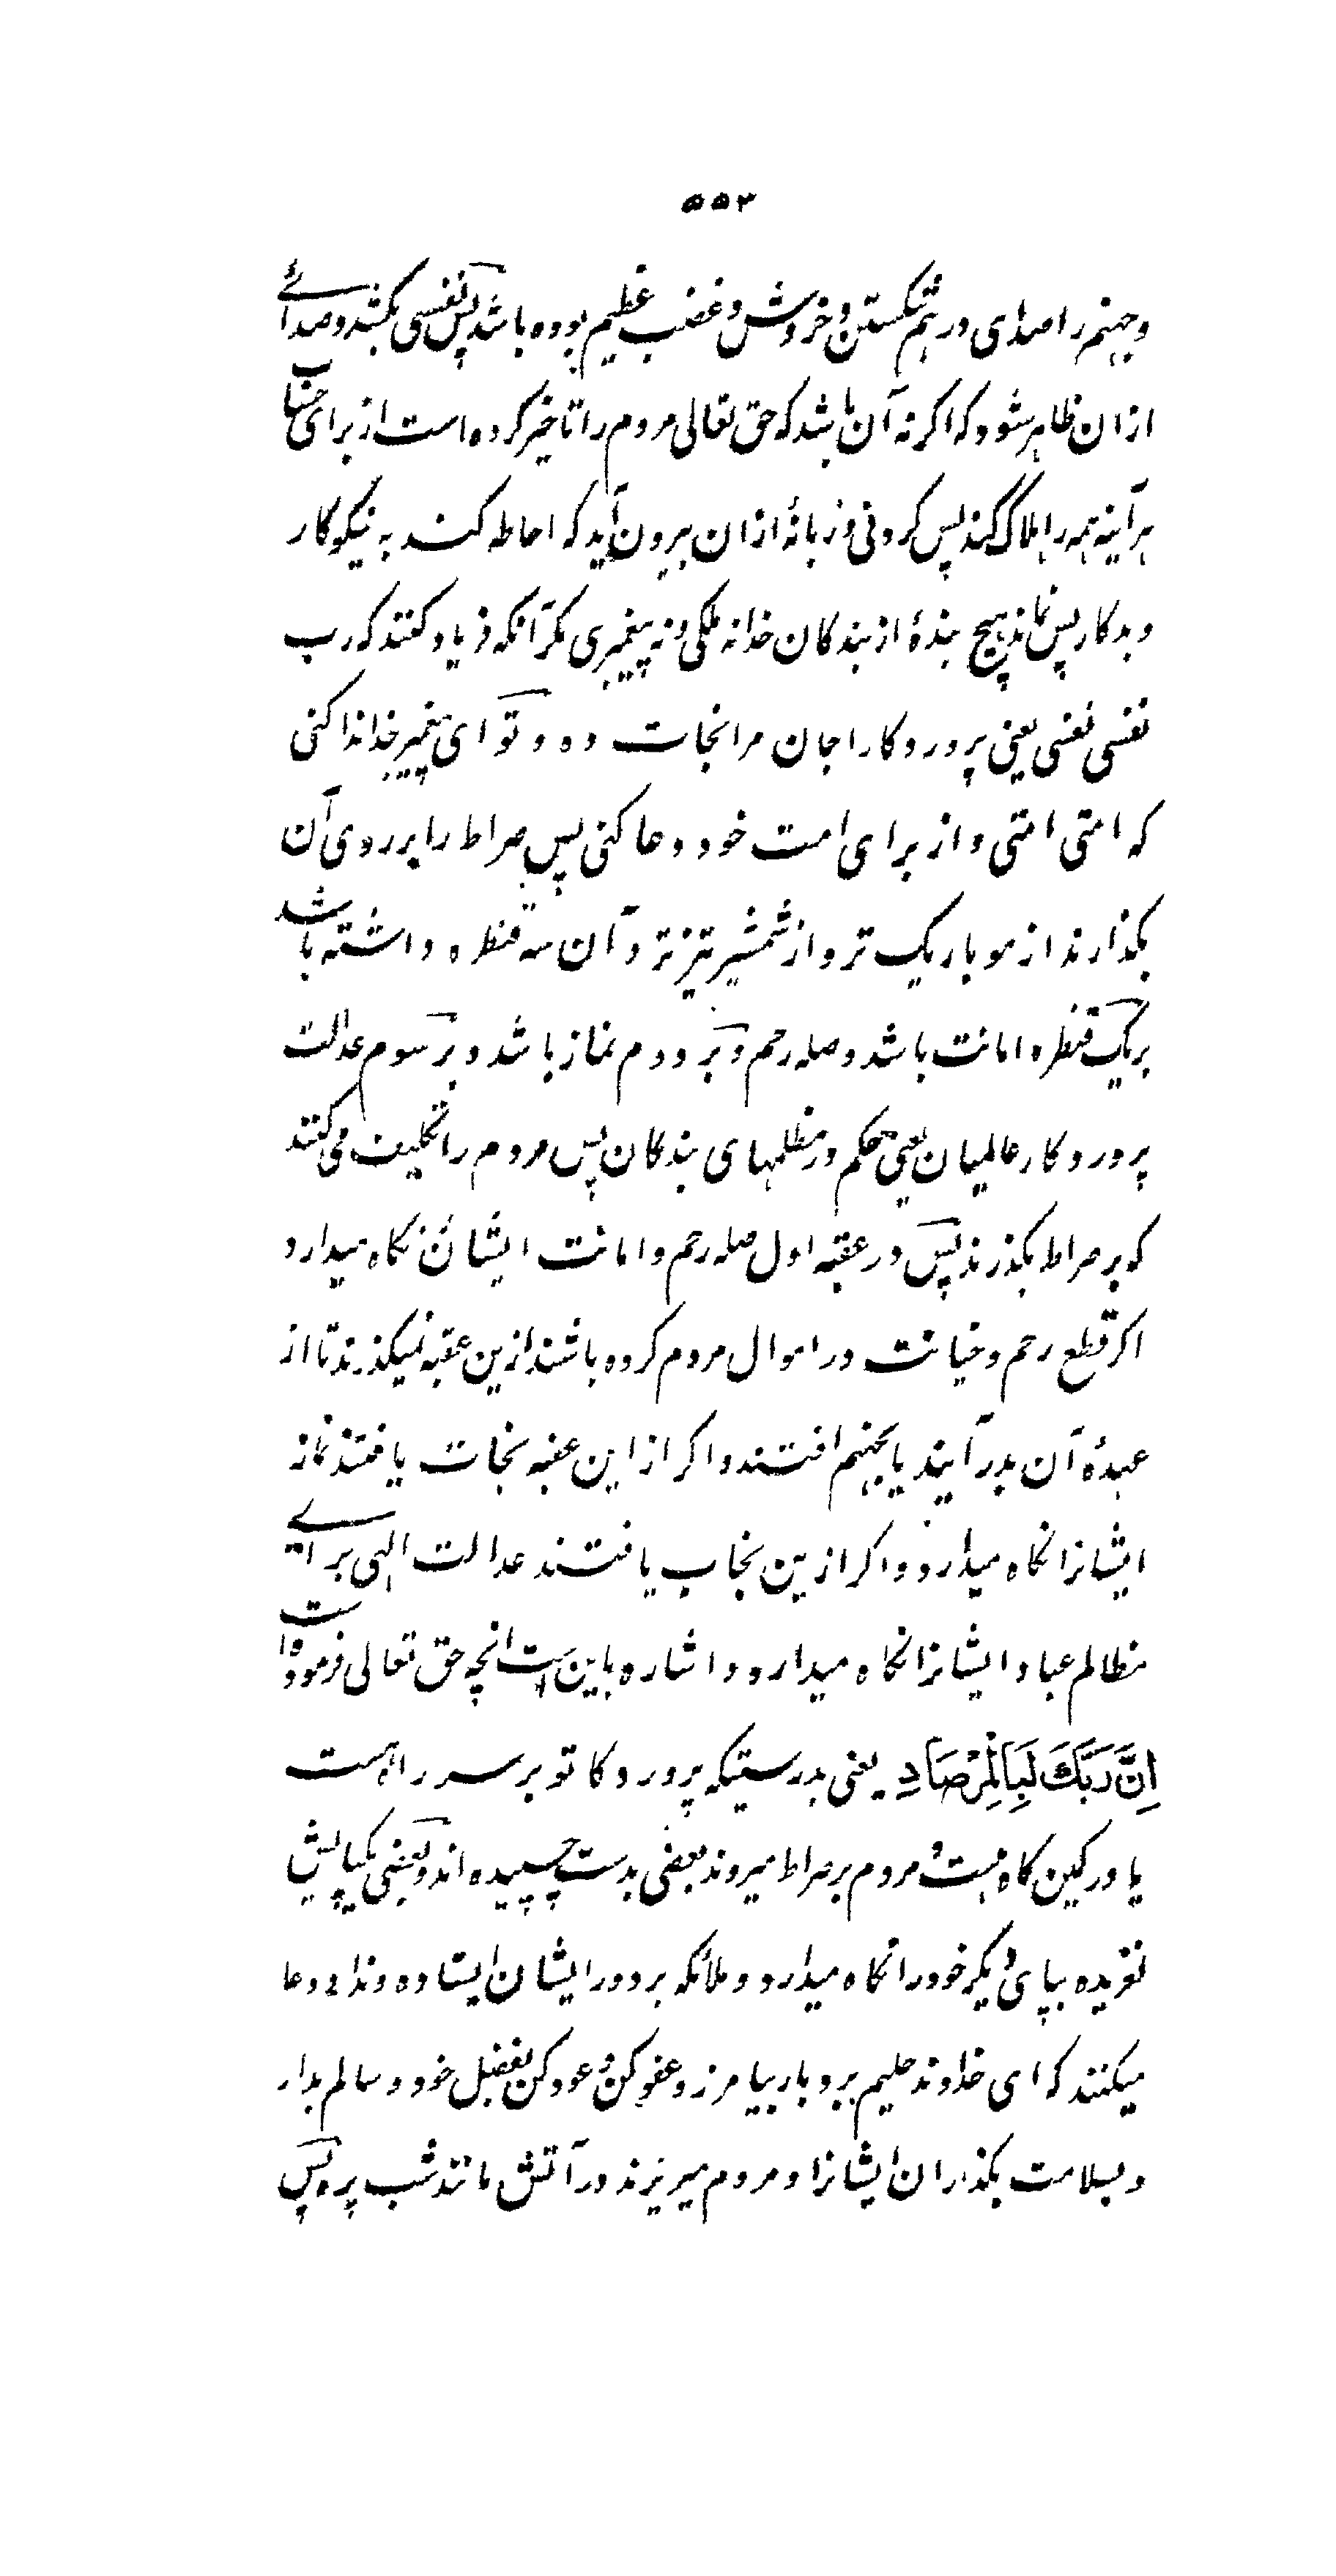 ۵۵۳
و جهنم را صدای درهم شکستن و خروش و غضب عظیم بوده باشد پس نفسی بکشد و صدائے
ازان ظاهر شود که اگر نه آن باشد که حق تعالی مردم را تاخیر کرده است از برای حساب
هر آینه همه را هلاک کند پس گردنی و زبانهٔ ازان بیرون آید که احاطه کند به نیکوکار
و بدکار پس نماند هیچ بندهٔ از بندگان خدا نه ملکی و نه پیغمبری مگر آنکه فریاد کنند که رب
نفسی نفسی یعنی پروردگارا جان مرا نجات ده و تو ای پیغمبر خدا ندا کنی
که امتی امتی و از برای امت خود دعا کنی پس صراط را بر روی آن
بگذارند از مو باریک تر و از شمشیر تیز تر و آن سه قنطره داشته باشد
بر یک قنطره امانت باشد و صله رحم و بر دوم نماز باشد و بر سوم عدالت
پروردگار عالمیان یعنی حکم در مظلمهای بندگان پس مردم را تکلیف می کنند
که بر صراط بگذرند پس در عقبه اول صله رحم و امانت ایشان نگاه میدارد
اگر قطع رحم و خیانت در اموال مردم کرده باشند ازین عقبه نمیگذرند تا از
عهدهٔ آن بدر آیند یا بجهنم افتند و اگر از این عقبه نجات یافتند نماز
ایشانرا نگاه میدارد و اگر ازین نجاب یافتند عدالت الهی برائے
مظالم عباد ایشانرا نگاه میدارد و اشاره باین است انچه حق تعالی فرموده است
اِنَّ رَبَّكَ لَبِالْمِرْصَادِ یعنی بدرستیکه پروردکا تو بر سر راهست
یا در کمین کاه هست و مردم بر صراط میروند بعضی بدست چسپیده اند و بعضی یکپایش
لغزیده بپای دیگر خود را نگاه میدارد و ملائکه بر دور ایشان ایستاده و ندا و دعا
میکنند که ای خداوند حلیم بردبار بیامرز و عفو کن و عود کن بفضل خود و سالم بدار
و بسلامت بگذران ایشانرا و مردم میریزند در آتش مانند شب پره پس